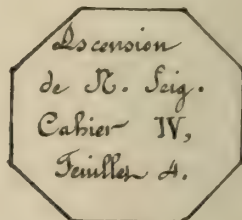 Ascension
de N. Seig.
Cahier IV,
Feuillet 4.